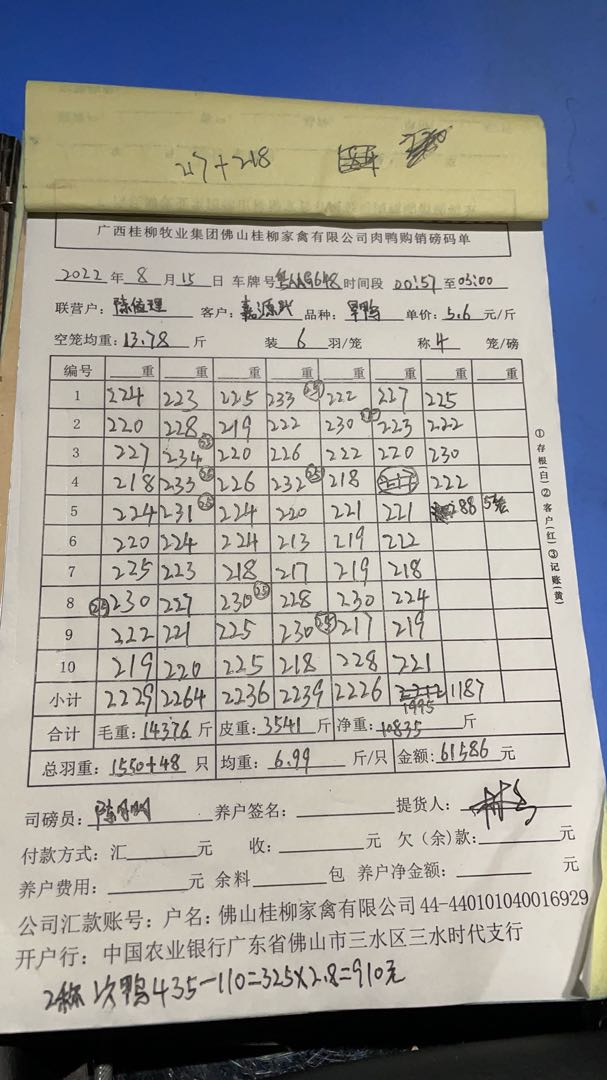 217+218
广西桂柳牧业集团佛山桂柳家禽有限公司肉鸭购销磅码单
2022年8月15日 车牌号 时间段 00:57至03:00
联营户: 客户: 品种: 单价:5.6元/斤
空笼均重:13.78斤 装6羽/笼 称4笼/磅
编号 重 重 重 重 重 重 重 重
1 224 223 225 233 25 222 227 225
2 220 228 219 222 230 223 222
3 227 234 220 226 222 220 230
4 218 233 226 232 25 218 222
5 224 231 224 220 221 221 288 5笼
6 220 224 224 213 219 222
7 225 223 218 217 219 218
8 25 230 227 230 25 228 230 224
9 222 221 225 230 25 217 219
10 219 220 225 218 228 221
小计 2229 2264 2236 2239 2226 1995 1187
合计 毛重:14376斤 皮重:3541斤 净重:10835斤
总羽重:1550+48只 均重:6.99斤/只 金额:61586元
司磅员: 养户签名: 提货人:
付款方式:汇 元 收: 元 欠(余)款: 元
养户费用: 元 余料 包 养户净金额: 元
公司汇款账号:户名:佛山桂柳家禽有限公司44-440101040016929
开户行:中国农业银行广东省佛山市三水区三水时代支行
2称 次鸭435-110=325×2.8=910元
①存根(白)②客户(红)③记账(黄)